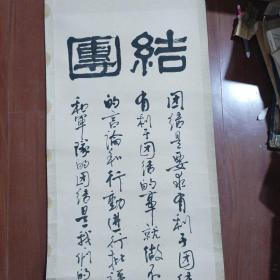 結團
团结是要求有利于团结
有利于团结的事就做不
的言論和行動進行批評
和軍隊的团结是我们的